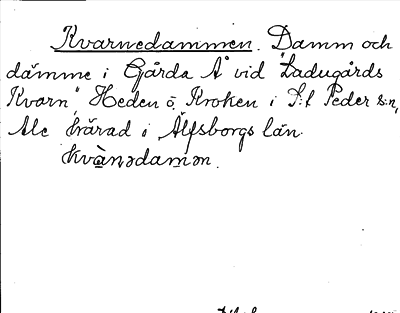 Kvarnedammen. Damm och
dämme i Gårda Å vid "Ladugårds
Kvarn", Heden o. Kroken i S:t Peder s:n,
Ale härad i Älfsborgs län.
kvànədamən.